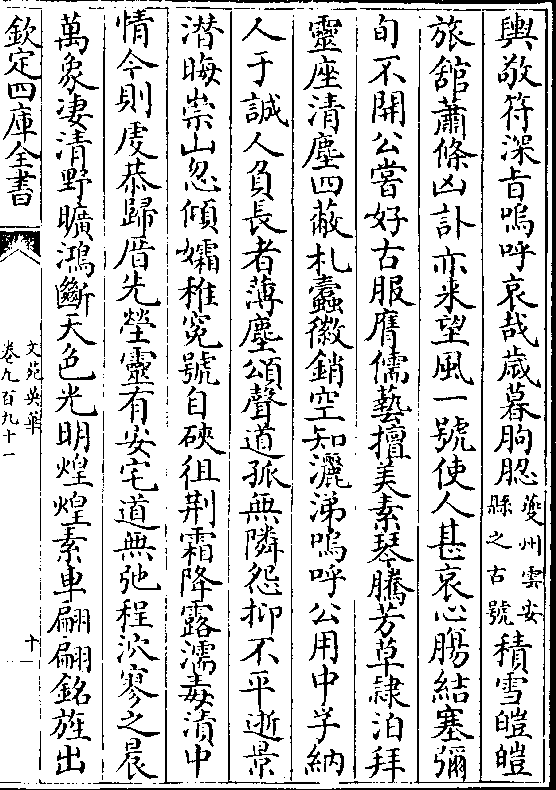 輿敬符深旨嗚呼哀哉歲暮朐䏰夔州雲安縣之古號積雪皚皚
旅舘蕭條凶訃亦來望風一號使人甚哀心腸結塞彌
旬不開公嘗好古服膺儒藝擅美素琴騰芳草隸洎拜
靈座清塵四蔽札蠹徽銷空知灑涕嗚呼公用中孚納
人于誠人負長者薄塵頌聲道孤無隣怨抑不平逝景
潛晦崇山忽傾孀稚寃號自硤徂荆霜降露濡毒漬中
情今則虔恭歸厝先塋靈有安宅道無弛程泬寥之晨
萬象淒清野曠鴻斷天色光明煌煌素車翩翩銘旌出
欽定四庫全書
文苑英華
卷九百九十一
十一